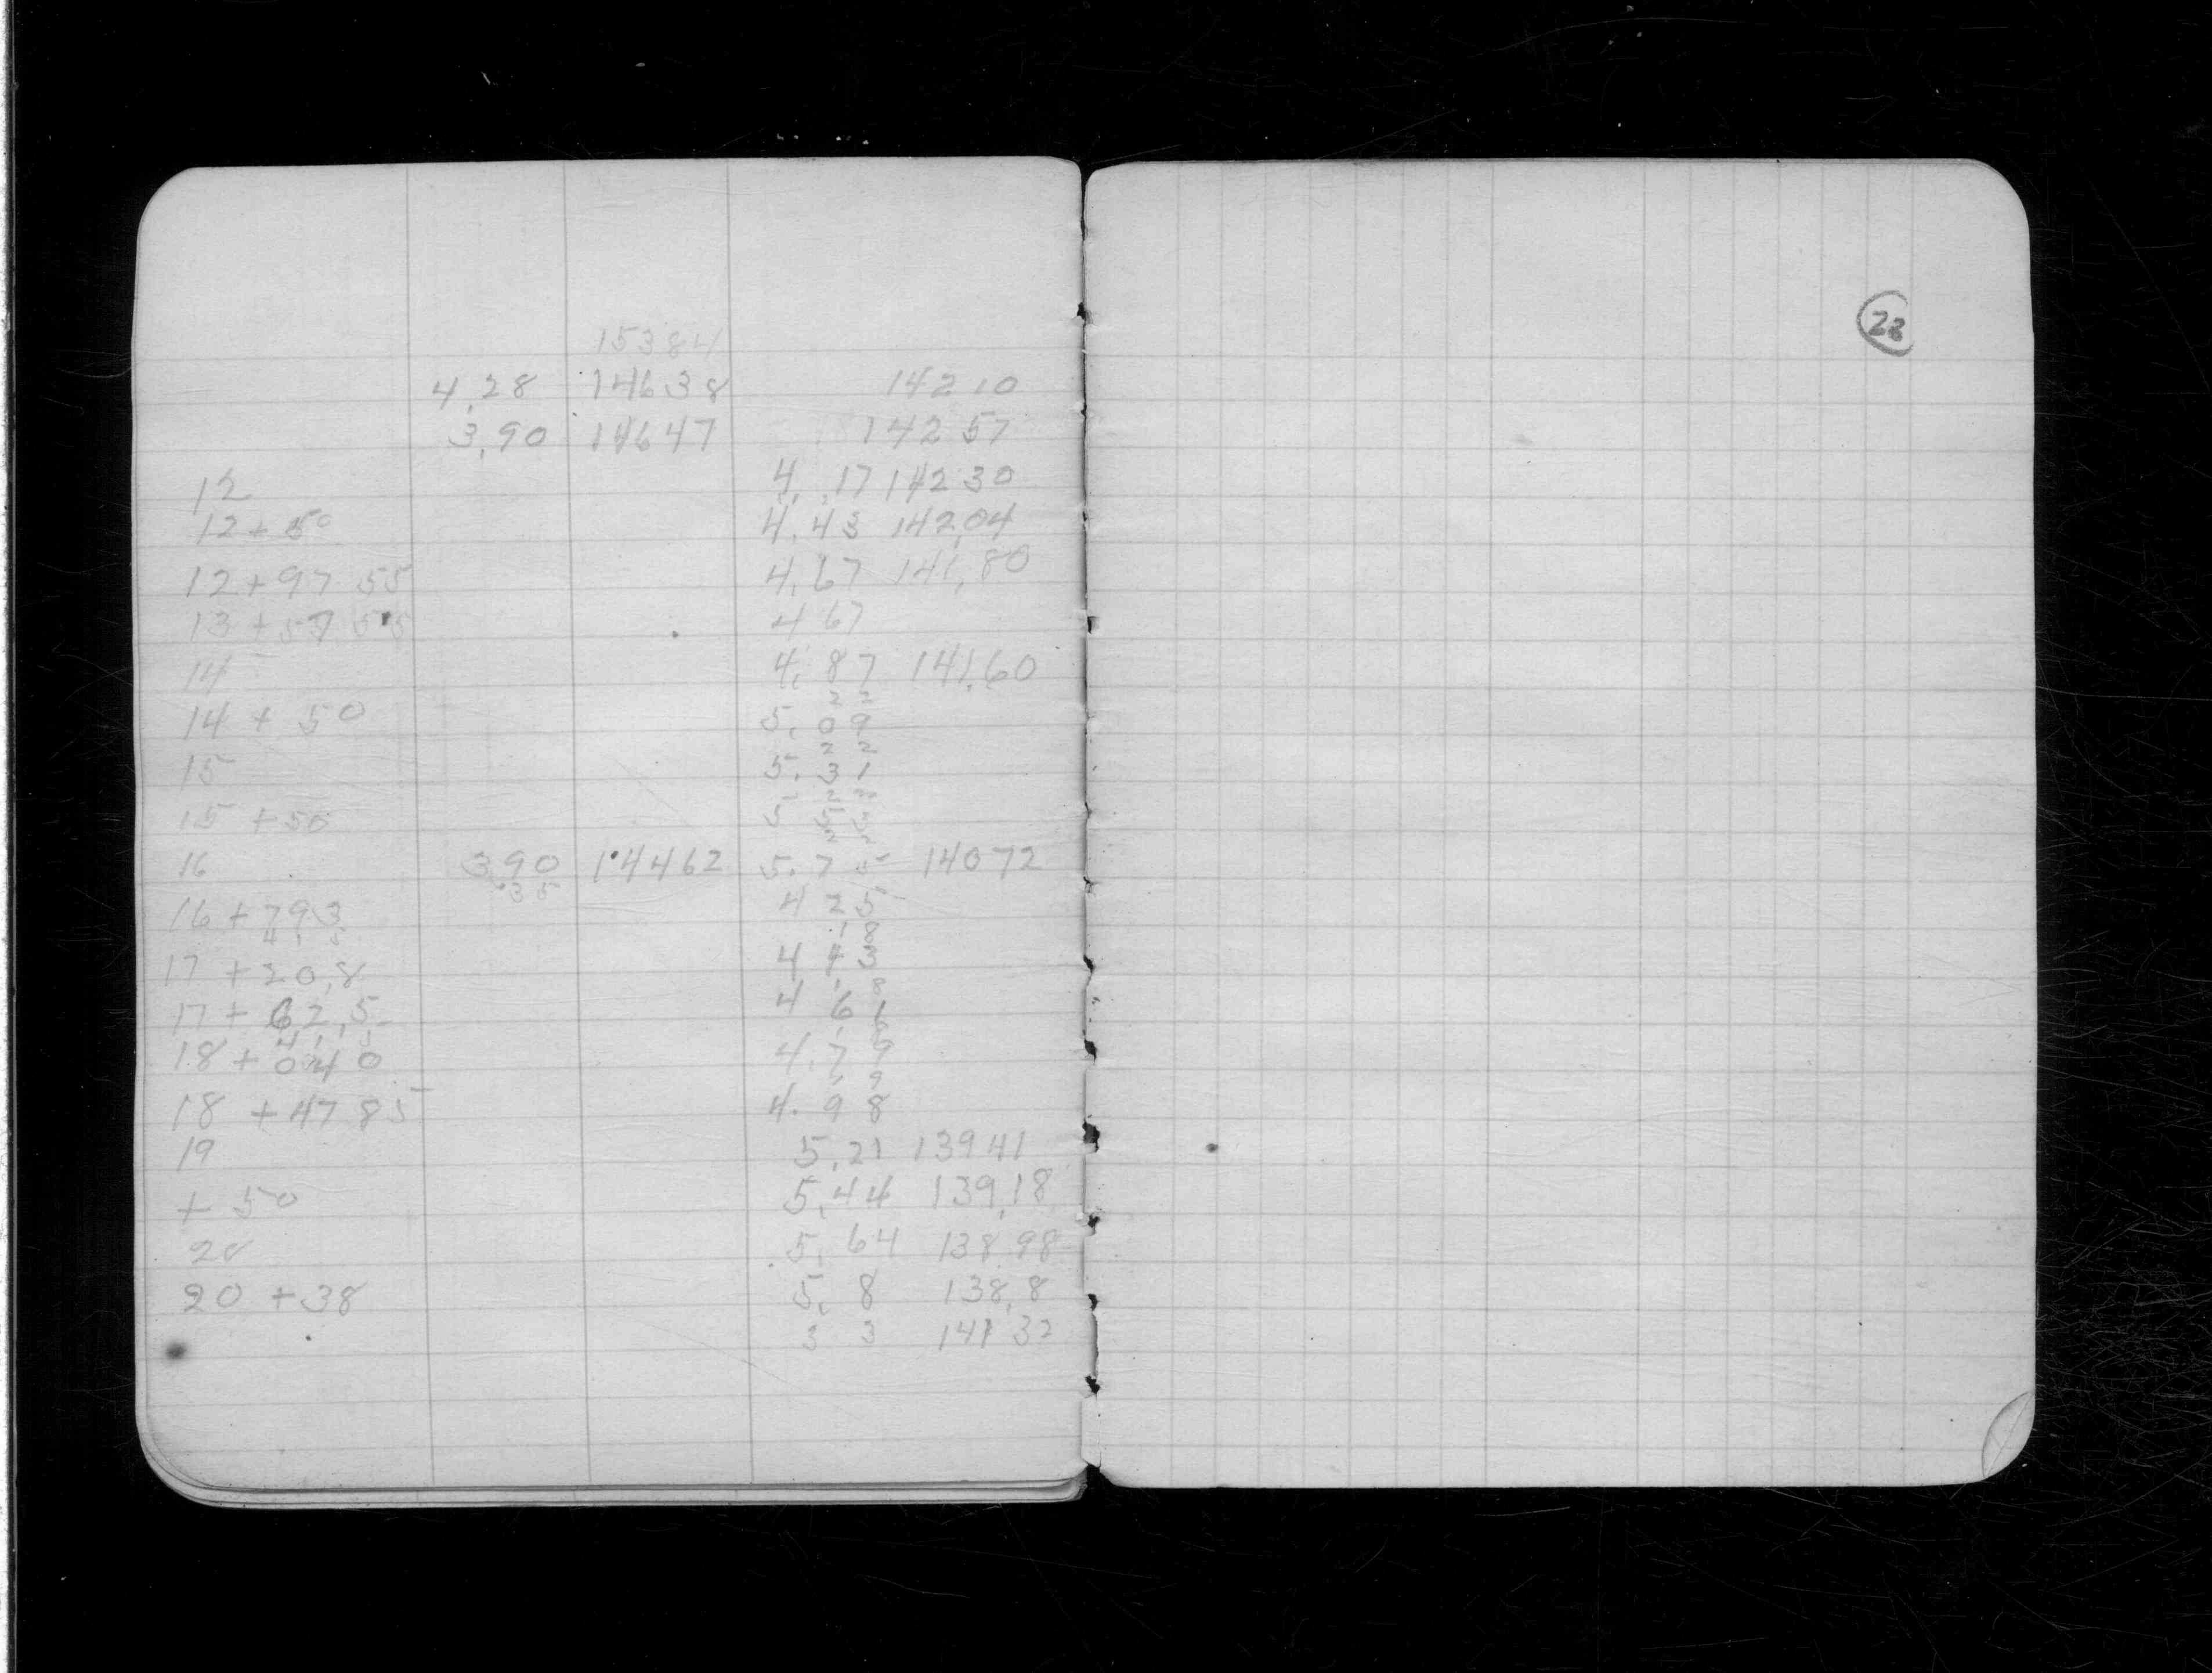 15384
4.28 14638 142 10
3.90 14647 142 57
12 4.17 142 30
12 + 50 4.43 142.04
12 + 97 55 4.67 141.80
13 + 57 55 4 67
14 4.87 141.60
2 2
14 + 50 5.09
2 2
15 5.31
2 2
15 + 50 5
16 3.90 14462 5.75 14072
.35
16 + 793 4 25
4 1 5 1 8
17 + 20.8 4 43
1 8
17 + 62.5 4 61
4 1 5
18 + 040 4.79
1 9
18 + 47 85 4.98
19 5.21 139 41
+ 50 5.44 139.18
20 5.64 138 98
20 + 38 5.8 138.8
3 3 141 32
22